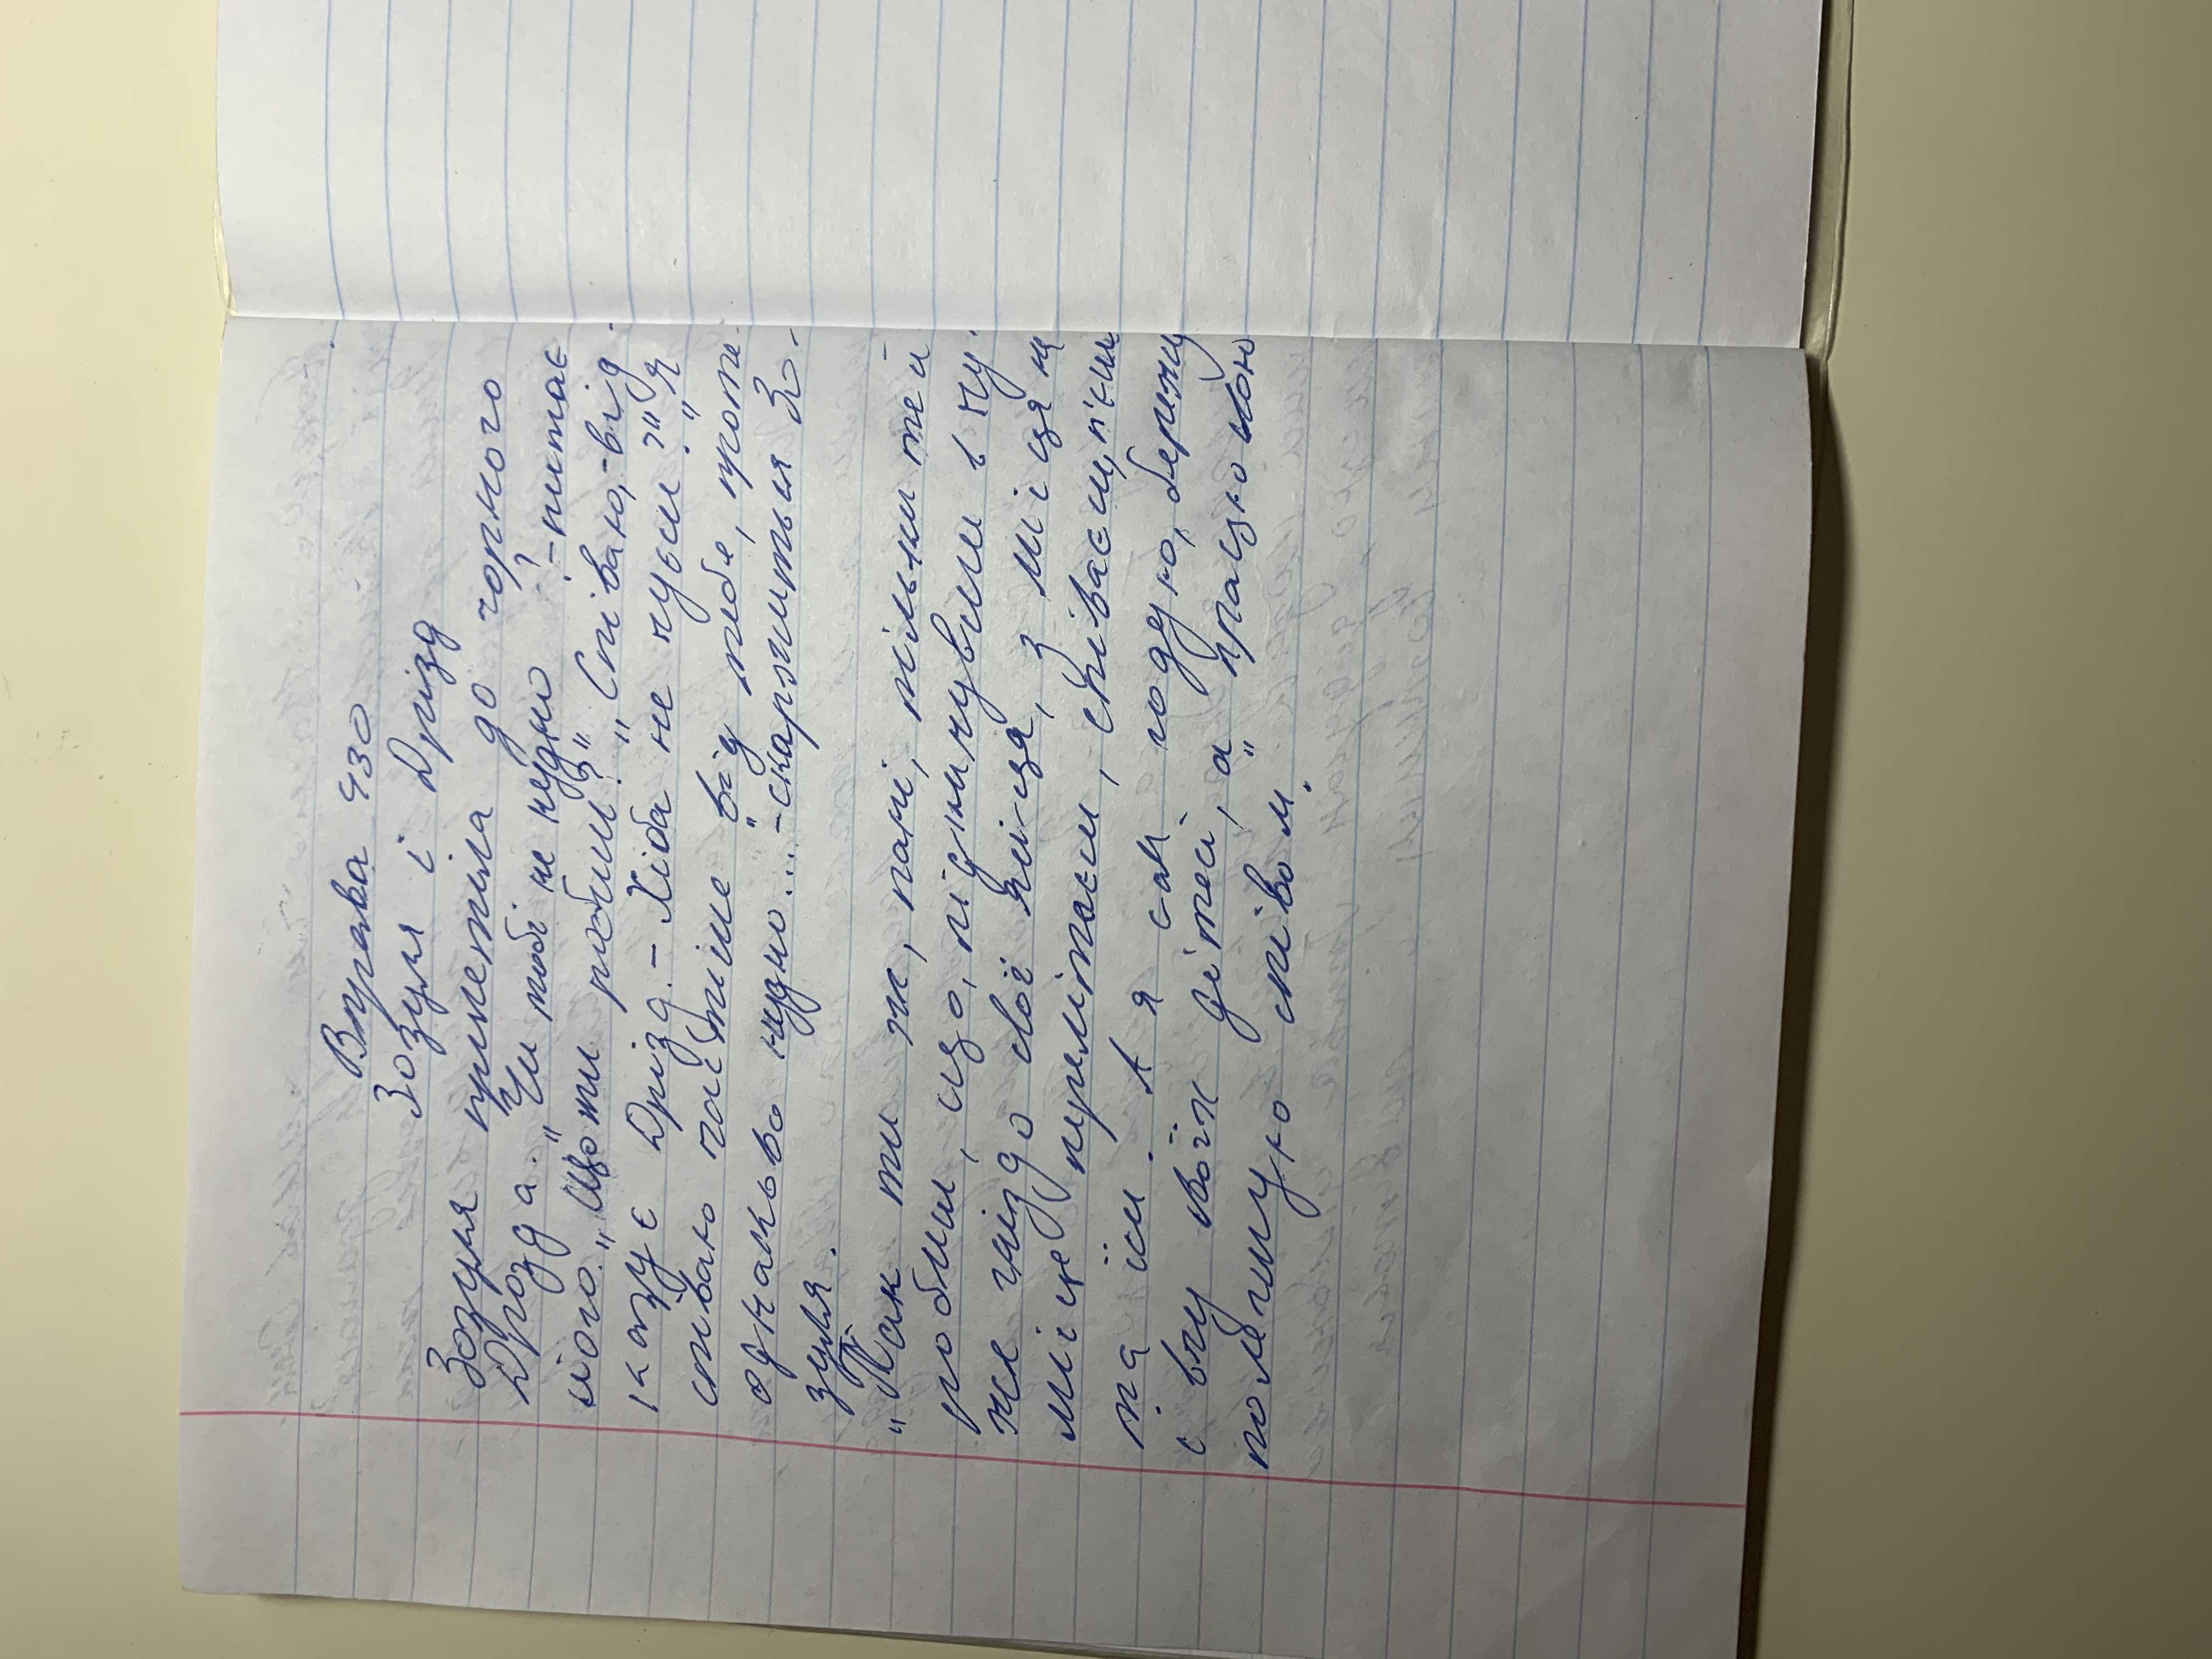 Вправа 430
Зозуля і Дрізд
Зозуля прилетіла до чорного
Дрозда. „Чи тобі не нудно? -питає
його. „Що ти робиш?" „Співаю,-від-
казує Дрізд.- Хіба не чуєш?" „Я
співаю частіше від тебе, проте
однаково нудно...-скаржиться Зо-
зуля.
„Так ти ж, пані, тільки те й
робиш, що, підкинувши в чу-
же гніздо свої яйця, з місця на
місце перелітаєш, співаєш, п'єш
та їси. А я сам годую, бережу
с вчу своїх дітей, а працю свою
полегшую співом.